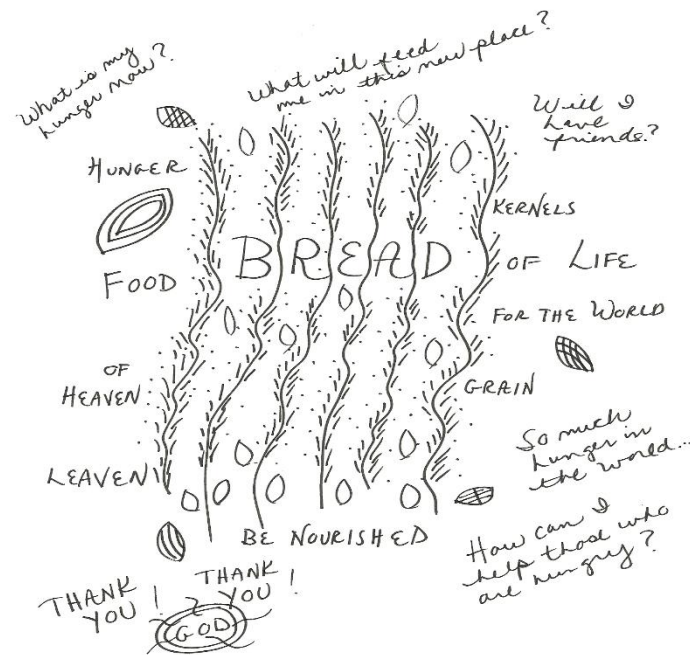 What is my
hunger now?
What will feed
me in this new place?
Will I
have
friends?
HUNGER
KERNELS
BREAD
OF LIFE
FOOD
FOR THE WORLD
OF
HEAVEN
GRAIN
So much
hunger in
the world...
LEAVEN
BE NOURISHED
How can I
help those who
are hungry?
THANK
YOU!
THANK
YOU!
GOD